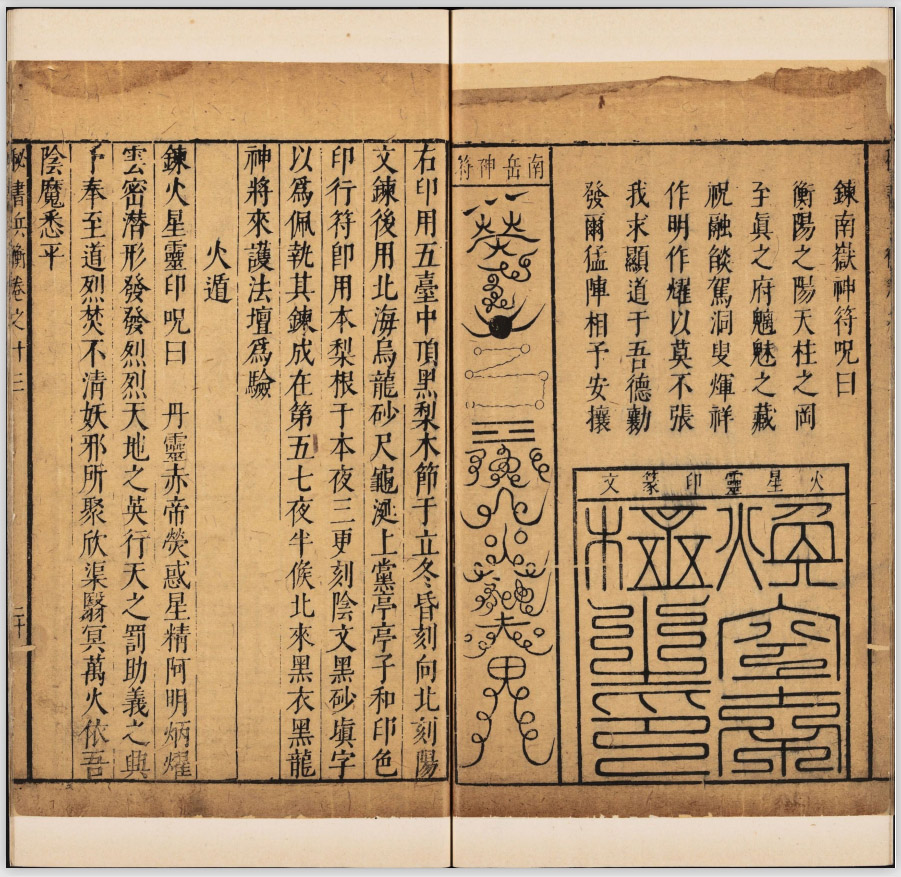 鍊南嶽神符呪曰
衡陽之陽天柱之岡
至眞之府魑魅之藏
祝融餤駕洞叟煇祥
作明作燿以莫不張
我求顯道于吾德勷
發爾猛陣相予安攘
火星靈印篆文
南岳神符
右印用五臺中頂黑梨木節于立冬昏刻向北刻陽
文鍊後用北海烏龍砂尺龜涎上黨亭亭子和印色
印行符卽用本梨根于本夜三更刻陰文黑砂塡字
以爲佩執其鍊成在第五七夜半候北來黑衣黑龍
神將來護法壇爲驗
火遁
鍊火星靈印呪曰 丹靈赤帝熒惑星精阿明炳燿
雲密潜形發發烈烈天地之英行天之罰助義之興
予奉至道烈焚不清妖邪所聚欣渠翳冥萬火依吾
陰魔悉平
秘書兵衡卷之十三
二十